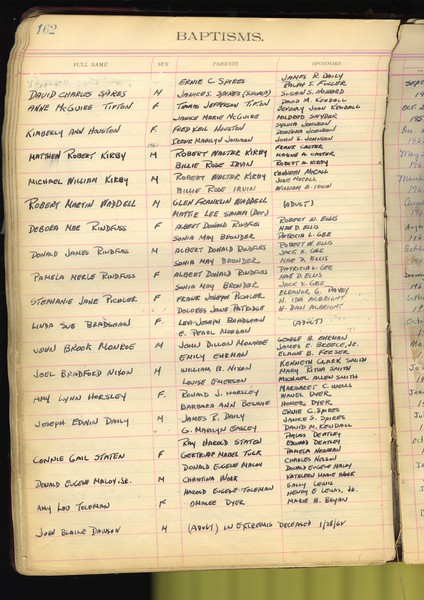 162
BAPTISMS.
FULL NAME SEX PARENTS SPONSORS
ERNIE C. SPIRES JAMES R. DAILY
DAVID CHARLES SPIRES M JANICE S. SPIRES RALPH S. FULLER
SUSAN S. HUBBARD
ANNE McGUIRE TIPTON F TRAVIS JEFFERSON TIPTON DAVID M. KENDALL
JANICE MARIE McGUIRE BEVERLY JOAN KENDALL
MILDRED SNYDER
KIMBERLY ANN HOUSTON F. FRED KEIL HOUSTON SYLVIA JOHNSON
IRENE MARILYN JOHNSON DEBORAH JOHNSON
1961 JOHN S. JOHNSON
MATTHEW ROBERT KIRBY M ROBERT WALTER KIRBY FRANK CASTOR
BILLIE ROSE IRVIN MAXINE A. CASTOR
ROBERT A. KIRBY
MICHAEL WILLIAM KIRBY M ROBERT WALTER KIRBY KENNETH McCALL
BILLIE ROSE IRVIN JUNE McCALL
WILLIAM B. IRVIN
ROBERT MARTIN WADDELL M GLEN FRANKLIN WADDELL (ADULT)
MATTIE LEE SARAH
DEBORA MAE RINDFUSS F ALBERT DONALD RINDFUSS ROBERT W. ELLIS
SONIA MAY BROWDER MAE D. ELLIS
PATRICIA L. GEE
DONALD JAMES RINDFUSS M ALBERT DONALD RINDFUSS ROBERT W. ELLIS
SONIA MAY BROWDER JACK K. GEE
MAE D. ELLIS
PAMELA MERLE RINDFUSS F ALBERT DONALD RINDFUSS PATRICIA L. GEE
SONIA MAY BROWDER MAE D. ELLIS
JACK K. GEE
STEPHANIE JANE PICHLER F FRANK JOSEPH PICHLER ELEANOR G. DAVEY
DOLORES JANE PATRIDGE N. IDA ALBRIGHT
N. DAN ALBRIGHT
LINDA SUE BRADSHAW F LEVI JOSEPH BRADSHAW (ADULT)
E. PEARL MORGAN
JOHN BROOK MONROE M JOHN DILLON MONROE GEORGE B. EHRMAN
EMILY EHRMAN JAMES E. BREECE, JR.
ELAINE B. FEESER
JOEL BRADFORD NIXON M WILLIAM B. NIXON KENNETH CLARK SMITH
LOUISE EMERSON MARY RITHA SMITH
MICHAEL ALLEN SMITH
AMY LYNN HORSLEY F. RONALD J. HORSLEY MARGARET C. WELLS
BARBARA ANN BENNIE HAZEL DYER
HOMER DYER
JOSEPH EDWIN DAILY M JAMES R. DAILY ERNIE C. SPIRES
G. MARILYN EAGLEY JANICE S. SPIRES
DAVID M. KENDALL
RAY HAROLD STATEN PHYLIS DEATLEY
CONNIE GAIL STATEN F GERTRUDE MABEL TUCK EDWARD DEATLEY
PAMELA NEWMAN
DONALD EUGENE MALOY CHARLES NELSON
DONALD EUGENE MALOY, JR. M CHRISTINA WORK DONALD EUGENE MALOY
KATHLEEN MARIE HAWK
HAROLD EUGENE TOLEMAN SALLY LEWIS
AMY LOU TOLEMAN F OMALEE DYER HENRY E. LEWIS, JR.
MARIE B. BRYAN
JOHN BLAINE DAWSON M (ADULT) IN EXTREMIS DECEASED 1/28/62